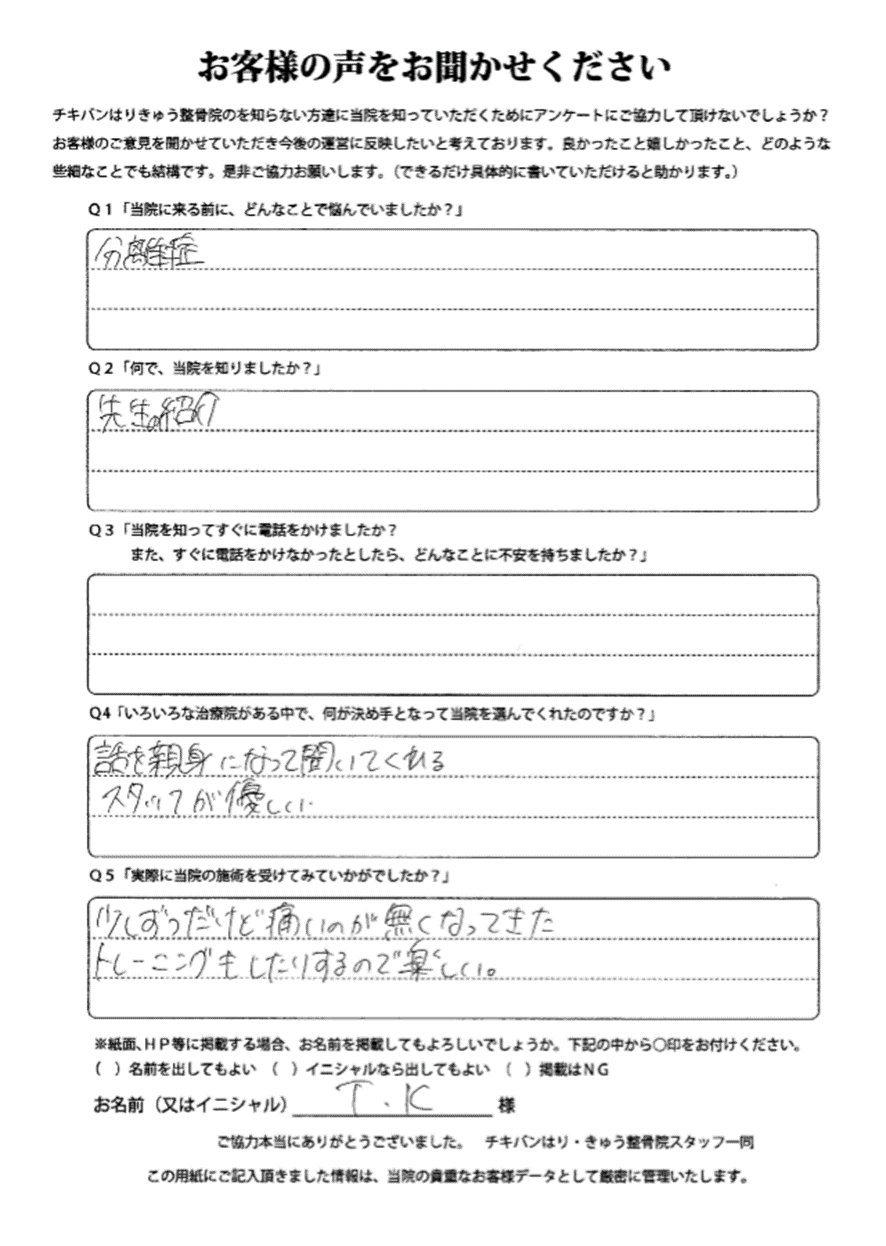 お客様の声をお聞かせください
チキバンはりきゅう整骨院のを知らない方達に当院を知っていただくためにアンケートにご協力して頂けないでしょうか？
お客様のご意見を聞かせていただき今後の運営に反映したいと考えております。良かったこと嬉しかったこと、どのような
些細なことでも結構です。是非ご協力お願いします。（できるだけ具体的に書いていただけると助かります。）
Q１「当院に来る前に、どんなことで悩んでいましたか？」
分離症
Q２「何で、当院を知りましたか？」
先生の紹介
Q３「当院を知ってすぐに電話をかけましたか？
また、すぐに電話をかけなかったとしたら、どんなことに不安を持ちましたか？」
Q4「いろいろな治療院がある中で、何が決め手となって当院を選んでくれたのですか？」
話を親身になって聞いてくれる
スタッフが優しい
Q５「実際に当院の施術を受けてみていかがでしたか？」
少しずつだけど痛いのが無くなってきた
トレーニングもしたりするので楽しい。
※紙面、ＨＰ等に掲載する場合、お名前を掲載してもよろしいでしょうか。下記の中から〇印をお付けください。
（　）名前を出してもよい　（　）イニシャルなら出してもよい　（　）掲載はＮＧ
お名前（又はイニシャル） T.K 様
ご協力本当にありがとうございました。　チキバンはり・きゅう整骨院スタッフ一同
この用紙にご記入頂きました情報は、当院の貴重なお客様データとして厳密に管理いたします。